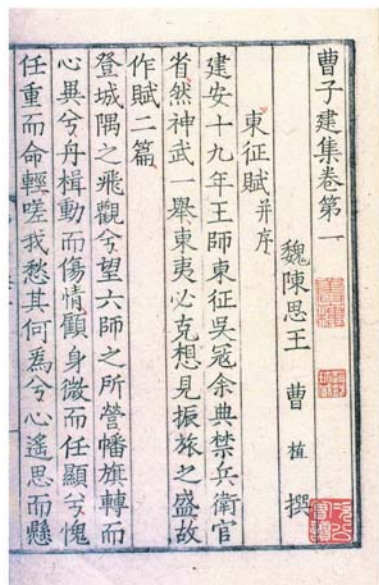 曹子建集卷第一
魏陳思王 曹植 撰
東征賦并序
建安十九年王師東征吳寇余典禁兵衛官
省然神武一舉東夷必克想見振旅之盛故
作賦二篇
登城隅之飛觀兮望六師之所營幡旗轉而
心異兮舟楫動而傷情顧身微而任顯兮愧
任重而命輕嗟我愁其何為兮心遙思而懸